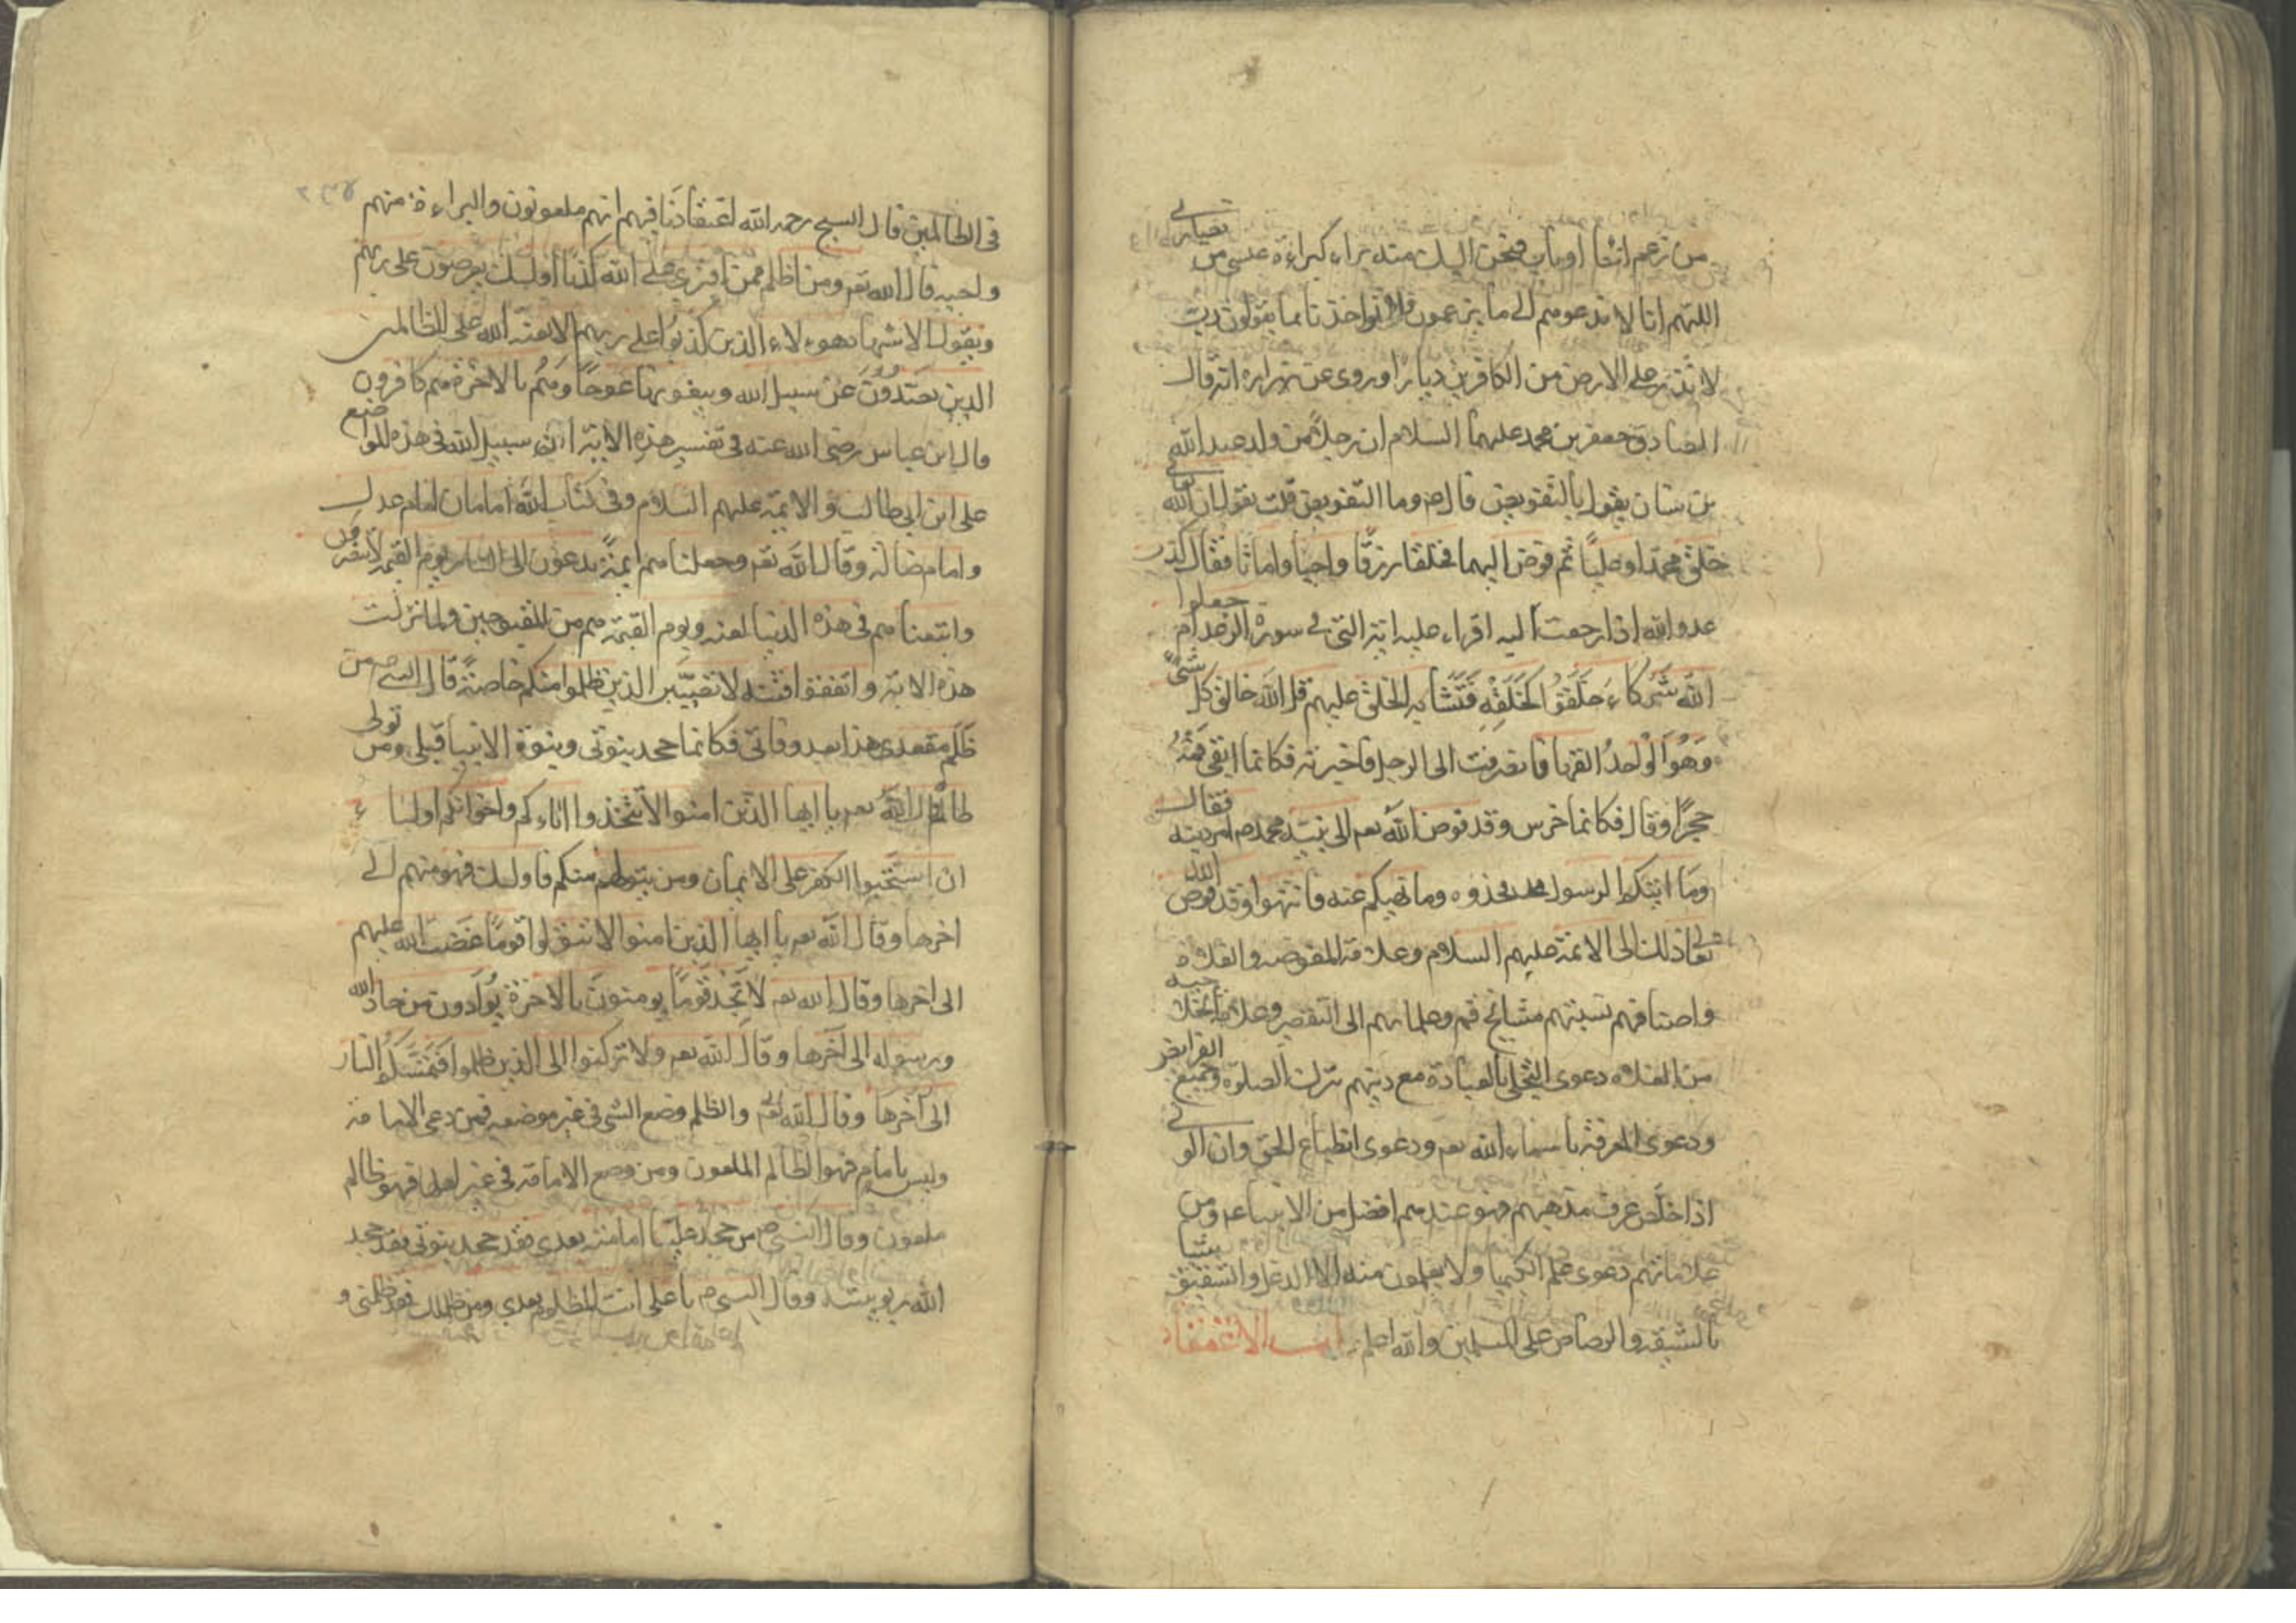 من زعم اننا ارباب فنحن اليك منه براء كبراءة عيسى من
النصارى
اللهم انا لا ندعوهم الى ما يزعمون فلا تواخذنا بما يقولون رب
لا تذر على الارض من الكافرين ديارا وروى عن زراره انه قال
الصادق جعفر بن محمد عليهما السلام ان رجلا من ولد عبد الله
بن سنان يقول بالتفويض قال ص وما التفويض قلت يقول ان الله تعالى
خلق محمدا وعليا ثم فوض اليهما فخلقا ورزقا واحيا واماتا فقال كذب
عدو الله اذا رجعت اليه اقراء عليه اية التى في سورة الرعد ام جعلوا
الله شركاء خلقوا كخلقه فتشابه الخلق عليهم قل الله خالق كل شىء
وهو الواحد القهار فانصرفت الى الرجل فاخبرته فكانما القى فمه
حجرا وقال فكانما خرس وقد فوض الله تعم الى نبيه محمد ص امر دينه فقال
وما اتيكم الرسول فخذوه وما نهيكم عنه فانتهوا وقد فوض الله
تعالى ذلك الى الائمة عليهم السلام وعلامة المفوضه والغلاة
واصنافهم نسبتهم مشائخ قم وعلمائهم الى التقصير وعلامة الحلاجيه
من الغلاه دعوى التجلى بالعبادة مع دينهم بترك الصلوة وجميع الفرايض
ودعوى المعرفة باسماء الله تعم ودعوى انطباع الحق وان الولى
اذا خلص عرف مذهبهم فهو عندهم افضل من الانبياء عم ومن
علاماتهم دعوى علم الكيميا ولا يعلمون منه الا الدغل والتنفيق شيئا
بالشبه والرصاص على المسلمين والله اعلم باب الاعتقاد
فى الظالمين قال الشيخ رحمه الله اعتقادنا فيهم انهم ملعونون والبراءة منهم
واجبه قال الله تعم ومن اظلم ممن افترى على الله كذبا اولئك يعرضون على ربهم
ويقول الاشهاد هوءلاء الذين كذبوا على ربهم الا لعنة الله على الظالمين
الذين يصدون عن سبيل الله ويبغونها عوجا وهم بالاخرة هم كافرون
قال ابن عباس رضى الله عنه فى تفسير هذه الاية ان سبيل الله فى هذه المواضع
على ابن ابى طالب والائمة عليهم السلام وفى كتاب الله امامان امام عدل
وامام ضالة وقال الله تعم وجعلناهم ايمة يدعون الى النار ويوم القيمة لا ينصرون
واتبعناهم فى هذه الدنيا لعنه ويوم القيمة هم من المقبوحين ولما نزلت
هذه الاية واتقوا فتنة لا تصيبن الذين ظلموا منكم خاصة قال النبي ص من
ظلم مقعدى هذا بعد وفاتى فكانما جحد بنوتى وبنوة الانبيا قبلى ومن تولى
ظالما قال الله تعم يا ايها الذين امنوا لا تتخذوا اباءكم واخوانكم اوليا ء
ان استحبوا الكفر على الايمان ومن يتولهم منكم فاولئك فهو منهم الى
اخرها وقال الله تعم يا ايها الذين امنوا لا تتولوا قوما غضب الله عليهم
الى اخرها وقال الله تعم لا تجد قوما يومنون بالاخرة يوادون من حاد الله
ورسوله الى آخرها وقال الله تعم ولا تركنوا الى الذين ظلموا فتمسكم النار
الى آخرها وقال الله تعالى والظلم وضع الشى فى غير موضعه فمن دعى الامامة
وليس بامام فهو الظالم الملعون ومن وضع الامامة فى غير اهلها فهو ظالم
ملعون وقال النبي ص من جحد عليا امامته بعدى فقد جحد بنوتى فقد جحد
الله ربوبيته وقال النبي ص يا على انت المظلوم بعدى ومن ظلمك فقد ظلمنى و